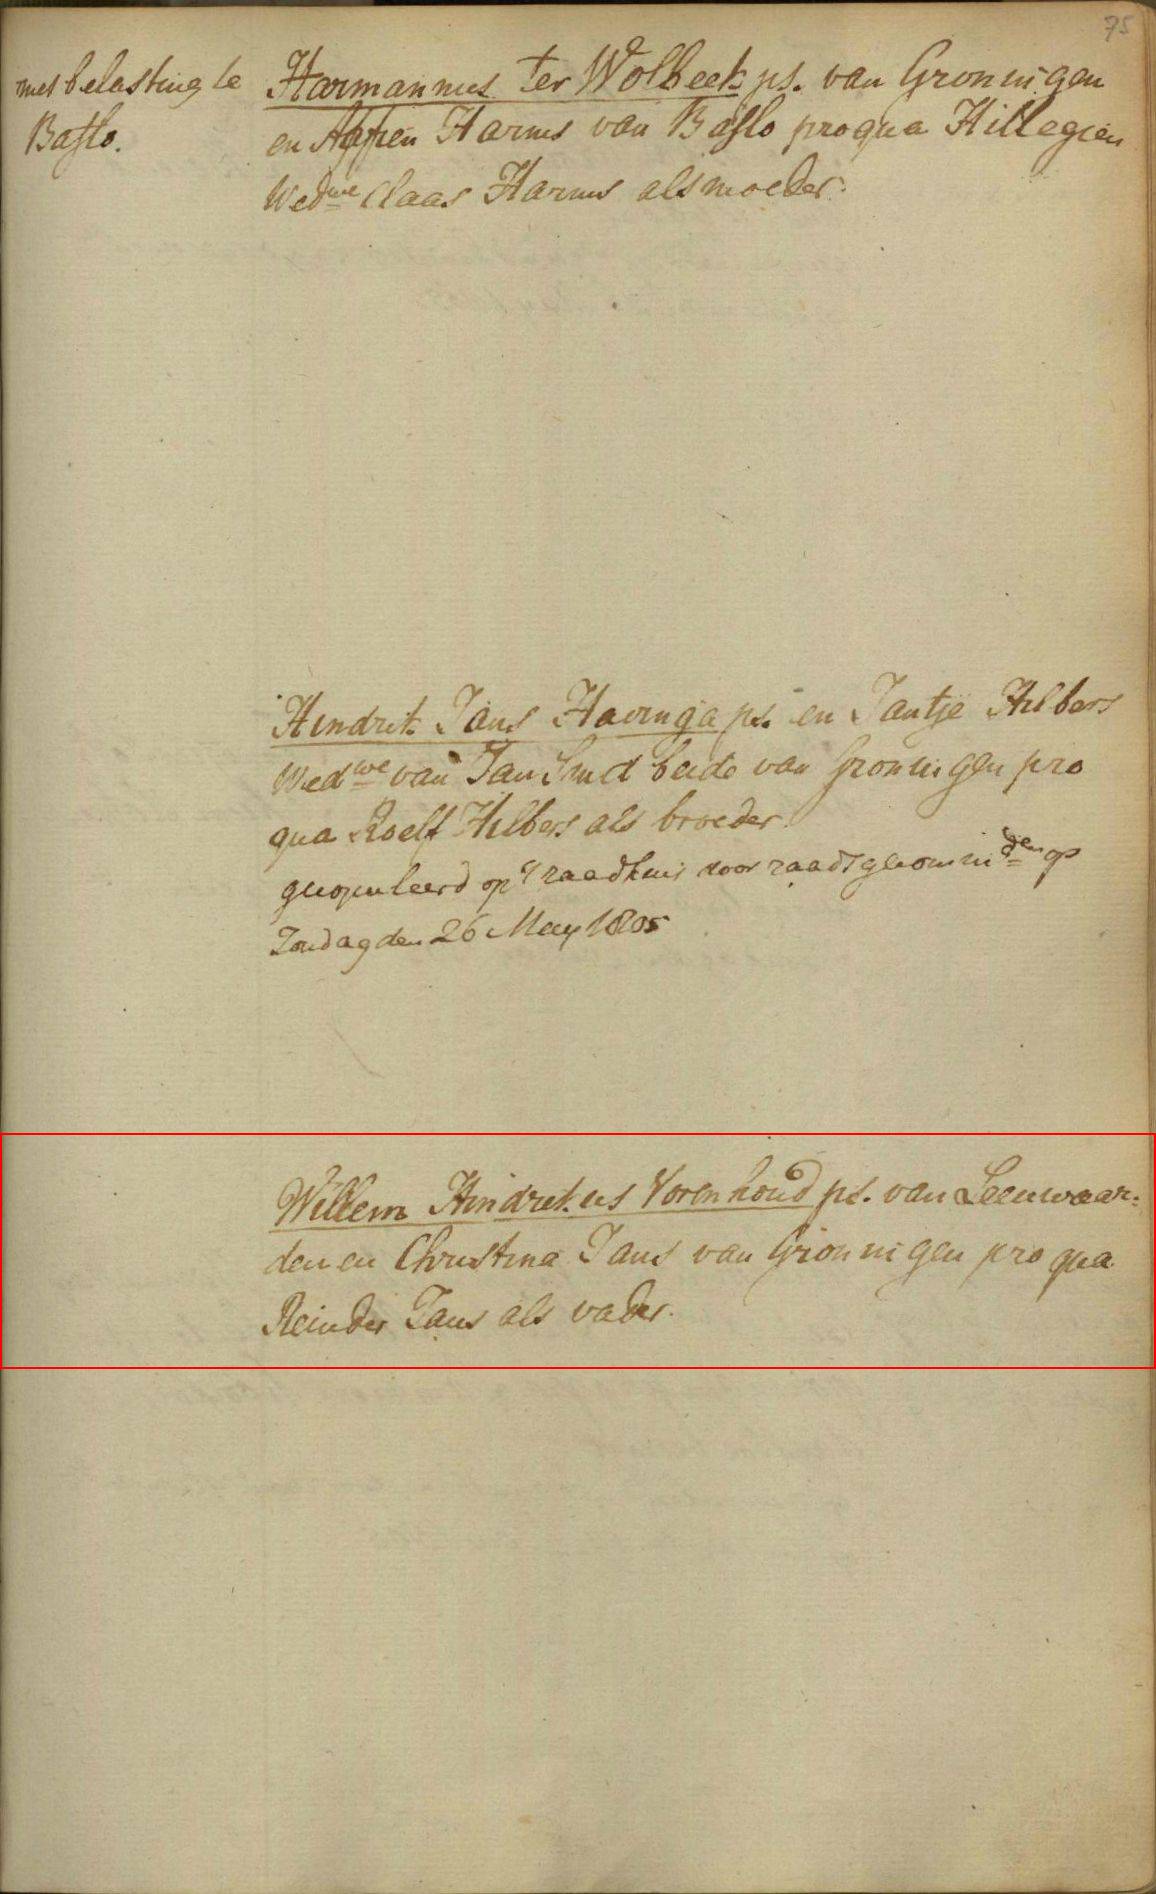 75
met belasting te
Baflo.
Harmannus ter Wolbeek ps. van Groningen
en Harms van Baflo pro qua Hillegien
Wedwe Claas Harms als moeder.
Hindrik Jans Havinga ps. en Jantje Hilbers
Wedwe van Jan Smit beide van Groningen pro
qua Roelf Hilbers als broeder.
gecopuleerd op 't raadhuis voor raadsgecommden op
Zondag den 26 May 1805
Willem Hindrikus Vorenhoud ps. van Leeuwaar-
den en Christina Jans van Groningen pro qua
Reinder Jans als vader.